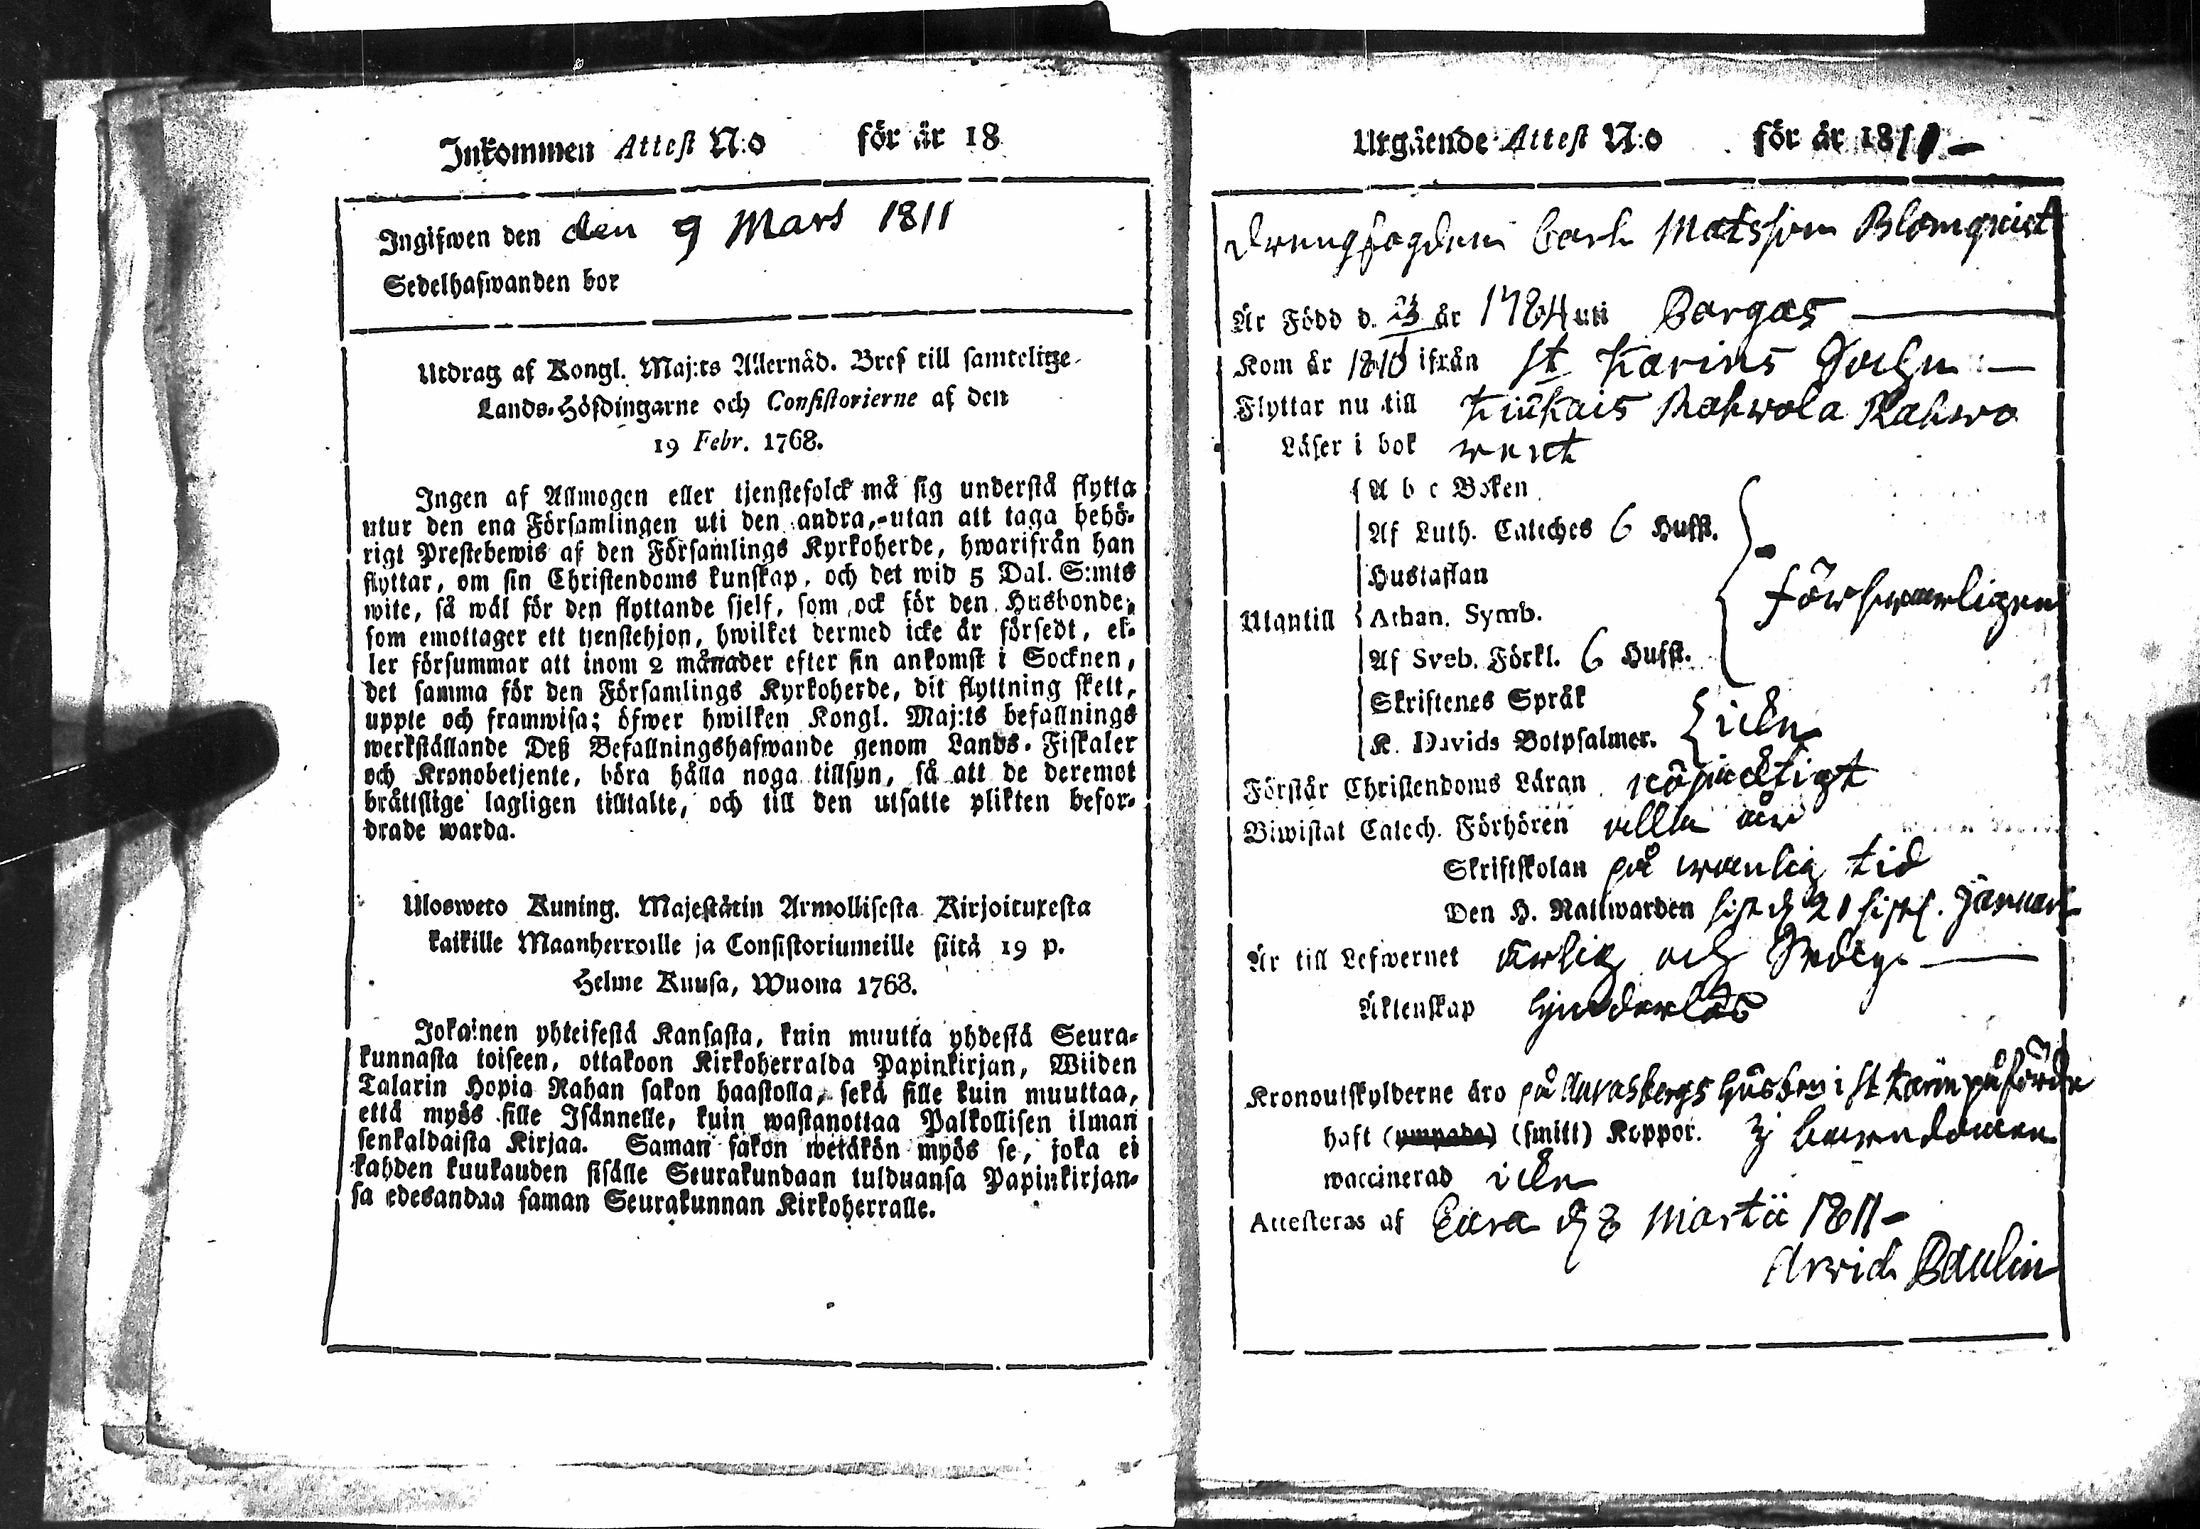 Inkommen Attest N:o för år 18
Ingifwen den den 9 Mars 1811
Sedelhafwanden bor
Utdrag af Kongl. Maj:ts Allernåd. Bref till samtelige
Lands-Höfdingarne och Consistorierne af den
19 Febr. 1768.
Ingen af Allmogen eller tjenstefolck må sig understå flytta
utur den ena Församlingen uti den andra, utan att taga behö-
rigt Prestebewis af den Församlings Kyrkoherde, hwarifrån han
flyttar, om sin Christendoms kunskap, och det wid 5 Dal. S:mts
wite, så wäl för den flyttande sjelf, som ock för den Husbonde,
som emottager ett tjenstehjon, hwilket dermed icke är försedt, el-
ler försummar att inom 2 månader efter sin ankomst i Socknen,
det samma för den Församlings Kyrkoherde, dit flyttning skett,
uppte och framwisa; öfwer hwilken Kongl. Maj:ts befallnings
werkställande Deß Befallningshafwande genom Lands-Fiskaler
och Kronobetjente, böra hålla noga tillsyn, så att de deremot
bråttslige lagligen tilltalte, och till den utsatte plikten befor-
drade warda.
Ulosweto Kuning. Majestätin Armollisesta Kirjoituxesta
kaikille Maanherroille ja Consistoriumeille siitä 19 p.
Helme Kuusa, Wuona 1768.
Jokainen yhteisestä Kansasta, kuin muutta yhdestä Seura-
kunnasta toiseen, ottakoon Kirkoherralda Papinkirjan, Wiiden
Talarin Hopia Rahan sakon haastolla, sekä sille kuin muuttaa,
että myös sille Isännelle, kuin wastanottaa Palkollisen ilman
senkaldaista Kirjaa. Saman sakon wetäkön myös se, joka ei
kahden kuukauden sisälle Seurakundaan tulduansa Papinkirjan-
sa edesandaa saman Seurakunnan Kirkoherralle.
Utgående Attest N:o för år 1811
Drengfogden Carl Matsson Blomquist
Är Född d. 23 år 1784 uti Pargas
Kom år 1810 ifrån St Karins Sochn
Flyttar nu till Kiukais Rahwola Rahwo
Läser i bok
A b c Boken
Af Luth. Cateches 6 Hufst.
Hustaflan
Utantill Athan. Symb. försvarligen
Af Sveb. Förkl. 6 Hufst.
Skriftenes Språk
K. Davids Botpsalmer. icke
Förstår Christendoms Läran
Biwistat Catech. Förhören alla år
Skriftskolan på wanlig tid
Den H. Nattwarden sist d 20 sistl. Januari
Är till Lefwernet ärlig och Sedig
Äktenskap hinderlös
Kronoutskylderne äro på Aurasbergs i St Karin påförde
haft (ympade) (smitt) Koppor.
waccinerad icke
Attesteras af Eura d 8 Martii 1811
Arvid Paulin